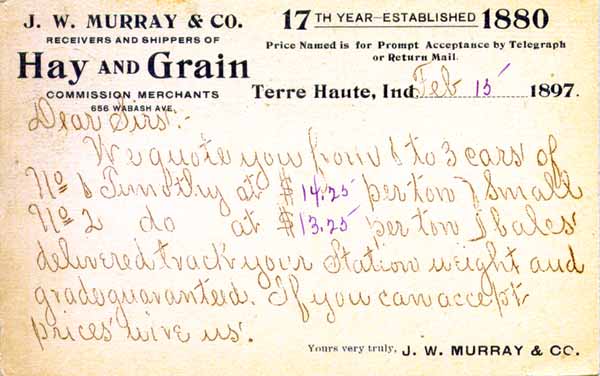 J. W. MURRAY & CO.
RECEIVERS AND SHIPPERS OF
Hay AND Grain
COMMISSION MERCHANTS
656 WABASH AVE.
17TH YEAR–ESTABLISHED 1880
Price Named is for Prompt Acceptance by Telegraph
or Return Mail.
Terre Haute, Ind. Feb 15 1897.
Dear Sirs:-
We quote you from 1 to 3 cars of
No 1 Timothy at $14.25 per ton } Small
No 2 do at $13.25 per ton } bales
delivered track your Station weight and
grade guaranteed. If you can accept
prices wire us.
Yours very truly, J. W. MURRAY & CO.